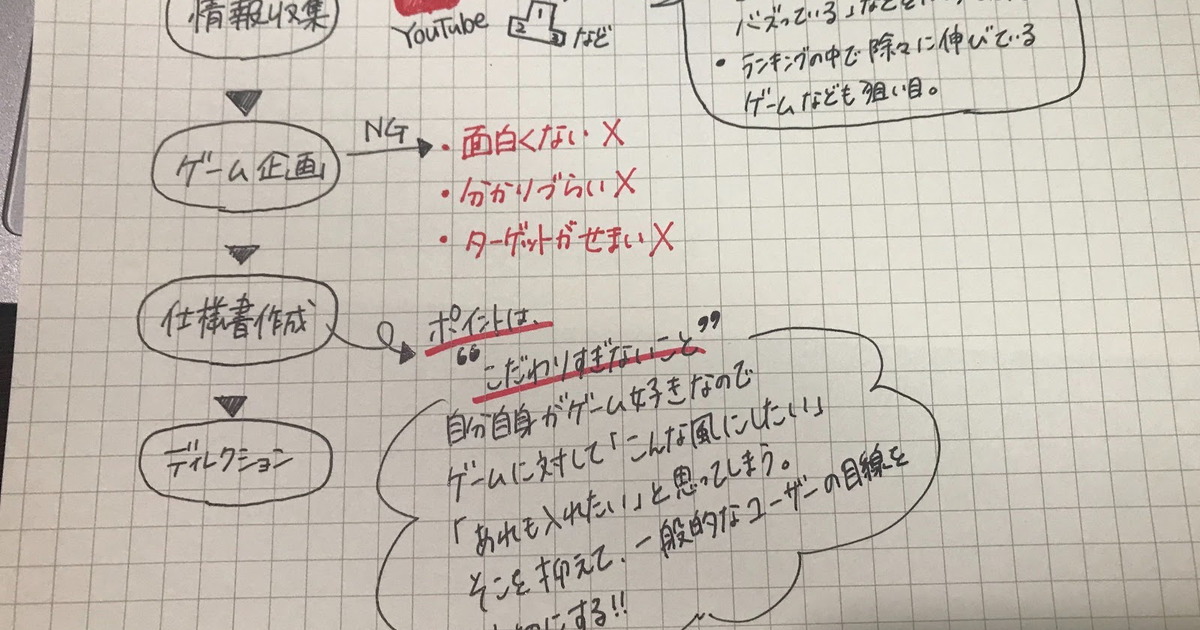 情報収集
YouTube
1
2 3 など
バズっている」など
・ランキングの中で除々に伸びている
ゲームなども狙い目。
ゲーム企画
NG
・面白くない X
・分かりづらい X
・ターゲットがせまい X
仕様書作成
ポイントは、
“こだわりすぎないこと”
自分自身がゲーム好きなので
ゲームに対して「こんな風にしたい」
「あれも入れたい」と思ってしまう。
そこを抑えて、一般的なユーザーの目線を
にする!!
ディレクション